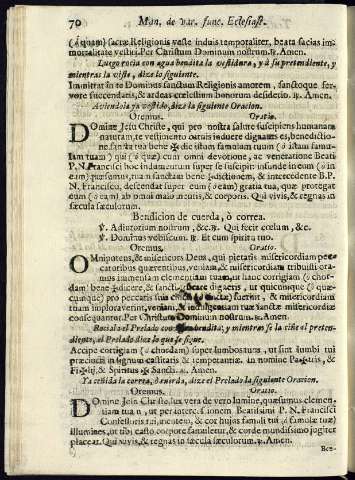 70 Man. de var. func. Eclesiast.
(ò quam) sacræ Religionis veste induis temporaliter, beata facias im-
mortalitate vestiri. Per Christum Dominum nostrum. ℟. Amen.
Luego rocia con agua bendita la vestidura, y à su pretendiente, y
mientras la viste, dize lo siguiente.
Immitrat in te Dominus sanctum Religionis amorem, sanctoque fer-
vore succendaris, & ad eas cœlestium bonorum desiderio. ℟. Amen.
Aviendola ya vestido, dize la siguiente Oracion.
Oremus. Oratio.
Domine Jesu Christe, qui pro nostra salute suscipiens humanam
naturam, te vestimento ornari induere dignatus es, benedictio-
ne sancta tua bene ✠ dic istam famulam tuum (ò istam famu-
lam tuam) qui (ò quæ) cum omni devotione, ac veneratione Beati
P. N. Francisci hoc indumentum super se suscipit: infunde in eum (ò in
eam) quæsumus, tuam sanctam bene ✠ dictionem, & intercedente B. P.
N. Francisco, descendat super eum (ò eam) gratia tua, quæ protegat
eum (ò eam) ab omni malo mentis, & corporis. Qui vivis, & regnas in
sæcula sæculorum.
Bendicion de cuerda, ò correa.
℣. Adiutorium nostrum, &c. ℟. Qui fecit cœlum, &c.
℣. Dominus vobiscum. ℟. Et cum spiritu tuo.
Oremus. Oratio.
Omnipotens, & misericors Deus, qui pietatis misericordiam pec-
catoribus quærentibus, veniam, & misericordiam tribuisti: ora-
mus immensam clementiam tuam, ut hanc corrigiam (ò chor-
dam) bene ✠ dicere, & sancti ficare digneris, ut quicunque (ò quæ-
cunque) pro peccatis suis cinctus (ò cincta) fuerint, & misericordiam
tuam imploraverint, veniam, & indulgentiam tuæ sanctæ misericordiæ
consequantur. Per Christum Dominum nostrum. ℟. Amen.
Rociala el Prelado con agua bendita; y mientras se la ciñe al preten-
diente, el Prelado dize lo que se sigue.
Accipe corrigiam (ò chordam) super lumbos tuos, ut sint lumbi tui
præcincti in signum castitatis & temperantiæ. In nomine Pa✠tris, &
Fi✠lij, & Spiritus ✠ Sancti. ℟. Amen.
Ya ceñida la correa, ò cuerda, dize el Prelado la siguiente Oracion.
Oremus. Oratio.
Domine Jesu Christe, lux vera de vero lumine, quæsumus clemen-
tiam tuam, ut per intercessionem Beatissimi P. N. Francisci
Confessoris tui, mentem, & cor hujus famuli tui (ò famulæ tuæ)
illumines, ut tibi casto corpore famuletur, & corde mundissimo jugiter
placeat. Qui vivis, & regnas in sæcula sæculorum. ℟. Amen.
Ben-